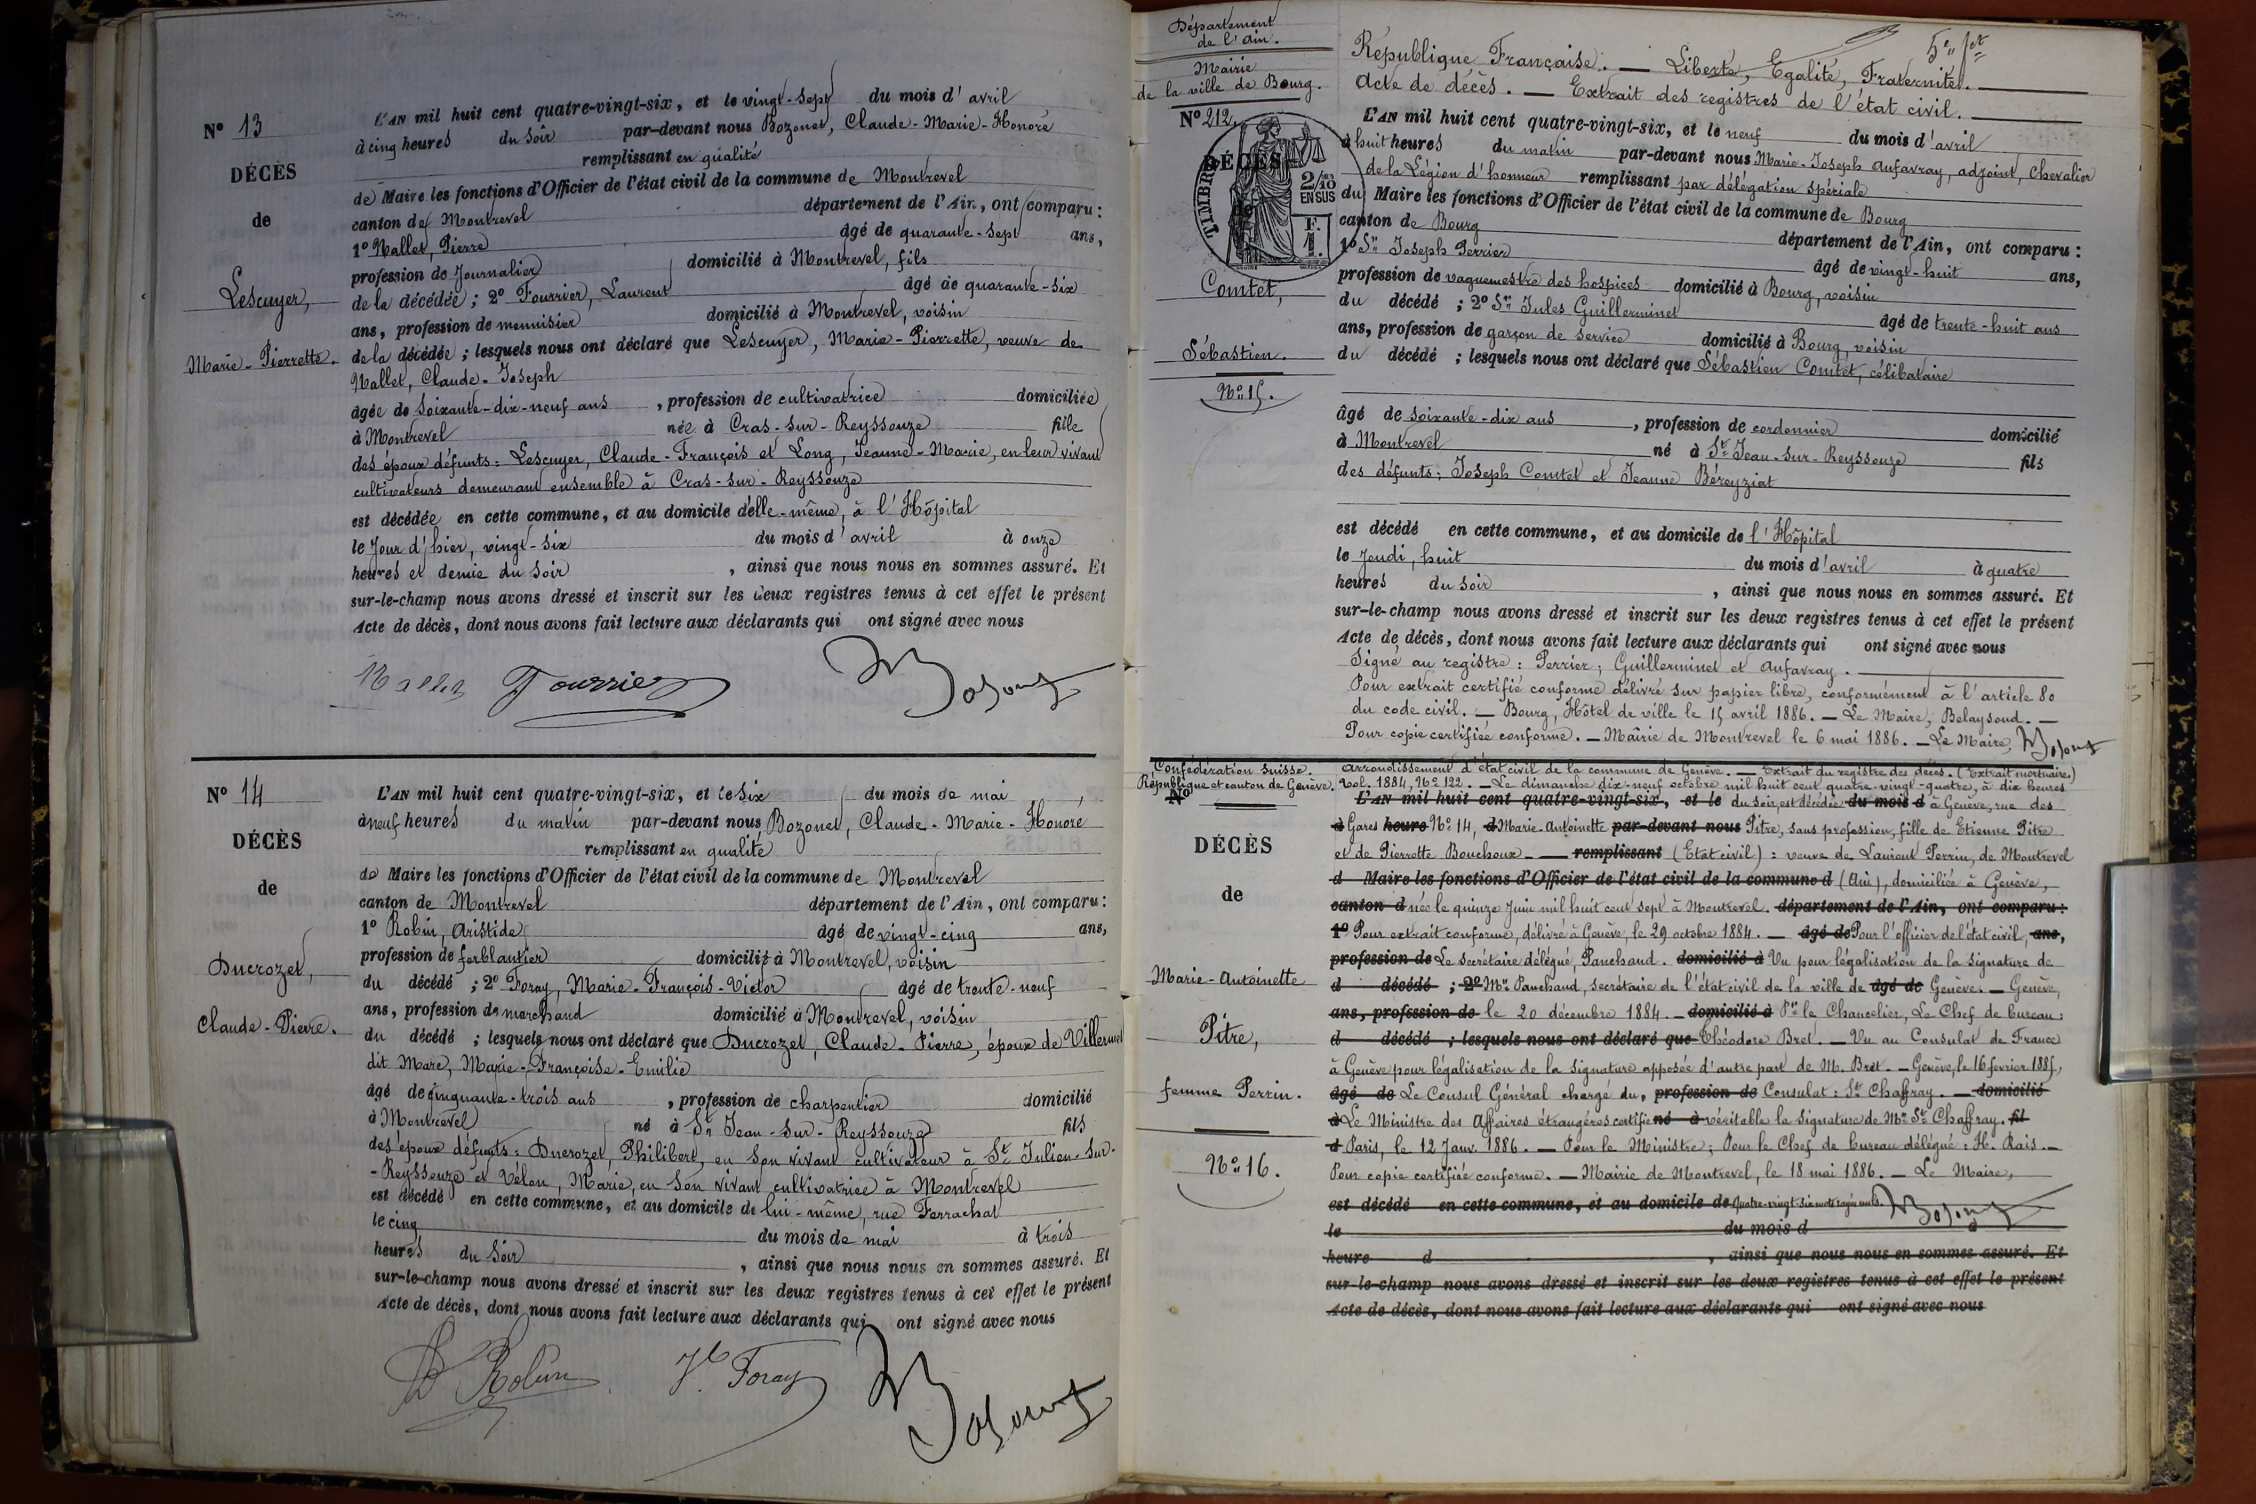 N° 13
DÉCÈS
de
Lescuyer,
Marie-Pierrette.
L'AN mil huit cent quatre-vingt-six, et le vingt-sept du mois d'avril
à cinq heures du soir par-devant nous Bozonet, Claude-Marie-Honoré
remplissant en qualité
de Maire les fonctions d'Officier de l'état civil de la commune de Montrevel
canton de Montrevel département de l'Ain, ont comparu :
1° Mallet, Pierre âgé de quarante-sept ans,
profession de Journalier domicilié à Montrevel, fils
de la décédée ; 2° Fourrier, Laurent âgé de quarante-six
ans, profession de menuisier domicilié à Montrevel, voisin
de la décédée ; lesquels nous ont déclaré que Lescuyer, Marie-Pierrette, veuve de
Mallet, Claude-Joseph
âgée de soixante-dix-neuf ans, profession de cultivatrice domiciliée
à Montrevel née à Cras-sur-Reyssouze fille
des époux défunts : Lescuyer, Claude-François et Long, Jeanne-Marie, en leur vivant
cultivateurs demeurant ensemble à Cras-sur-Reyssouze
est décédée en cette commune, et au domicile d'elle-même, à l'Hôpital
le Jour d'hier, vingt-six du mois d'avril à onze
heures et demie du soir, ainsi que nous nous en sommes assuré. Et
sur-le-champ nous avons dressé et inscrit sur les deux registres tenus à cet effet le présent
Acte de décès, dont nous avons fait lecture aux déclarants qui ont signé avec nous
Mallet Fourrier Bozonet
N° 14
DÉCÈS
de
Ducrozet,
Claude-Pierre.
L'AN mil huit cent quatre-vingt-six, et le six du mois de mai
à neuf heures du matin par-devant nous Bozonet, Claude-Marie-Honoré
remplissant en qualité
de Maire les fonctions d'Officier de l'état civil de la commune de Montrevel
canton de Montrevel département de l'Ain, ont comparu :
1° Robin, Aristide âgé de vingt-cinq ans,
profession de ferblantier domicilié à Montrevel, voisin
du décédé ; 2° Foray, Marie-François-Victor âgé de trente-neuf
ans, profession de marchand domicilié à Montrevel, voisin
du décédé ; lesquels nous ont déclaré que Ducrozet, Claude-Pierre, époux de Villermet
dit Marc, Marie-Françoise-Emilie
âgé de cinquante-trois ans, profession de charpentier domicilié
à Montrevel né à St Jean-sur-Reyssouze fils
des époux défunts : Ducrozet, Philibert, en son vivant cultivateur à St Julien-sur-
-Reyssouze et Vélon, Marie, en son vivant cultivatrice à Montrevel
est décédé en cette commune, et au domicile de lui-même, rue Ferrachat
le cinq du mois de mai à trois
heures du soir, ainsi que nous nous en sommes assuré. Et
sur-le-champ nous avons dressé et inscrit sur les deux registres tenus à cet effet le présent
Acte de décès, dont nous avons fait lecture aux déclarants qui ont signé avec nous
Robin Vr Foray Bozonet
Département
de l'Ain.
Mairie
de la ville de Bourg.
N° 212.
DÉCÈS
de
TIMBRE
2/10
EN SUS
F.
1.
Comtet,
Sébastien.
N° 15.
République Française. — Liberté, Egalité, Fraternité.
Acte de décès. — Extrait des registres de l'état civil.
L'AN mil huit cent quatre-vingt-six, et le neuf du mois d'avril
à huit heures du matin par-devant nous Marie-Joseph Aufavray, adjoint, Chevalier
de la Légion d'honneur remplissant par délégation spéciale
du Maire les fonctions d'Officier de l'état civil de la commune de Bourg
canton de Bourg département de l'Ain, ont comparu :
1° Sr Joseph Perrier âgé de vingt-huit ans,
profession de vaguemestre des hospices domicilié à Bourg, voisin
du décédé ; 2° Sr Jules Guilleminet âgé de trente-huit ans
ans, profession de garçon de service domicilié à Bourg, voisin
du décédé ; lesquels nous ont déclaré que Sébastien Comtet, célibataire
âgé de soixante-dix ans, profession de cordonnier domicilié
à Montrevel né à St Jean-sur-Reyssouze fils
des défunts : Joseph Comtet et Jeanne Béreyziat
est décédé en cette commune, et au domicile de l'Hôpital
le Jeudi, huit du mois d'avril à quatre
heures du soir, ainsi que nous nous en sommes assuré. Et
sur-le-champ nous avons dressé et inscrit sur les deux registres tenus à cet effet le présent
Acte de décès, dont nous avons fait lecture aux déclarants qui ont signé avec nous
Signé au registre : Perrier, Guilleminet et Aufavray.
Pour extrait certifié conforme délivré sur papier libre, conformément à l'article 80
du code civil. — Bourg, Hôtel de ville le 15 avril 1886. — Le Maire, Belaysoud. —
Pour copie certifiée conforme. — Mairie de Montrevel le 6 mai 1886. — Le Maire, Bozonet
Confédération Suisse.
République et canton de Genève.
N°
DÉCÈS
de
Marie-Antoinette
Pitre,
femme Perrin.
N° 16.
Arrondissement d'état civil de la commune de Genève. — Extrait du registre des décès. (Extrait mortuaire.)
Vol. 1884, N° 122. — Le dimanche dix-neuf octobre mil huit cent quatre-vingt-quatre, à dix heures
L'AN mil huit cent quatre-vingt-six, et le du soir est décédée du mois d à Genève, rue des
à Gares heure N° 14, d Marie-Antoinette par-devant nous Pitre, sans profession, fille de Etienne Pitre
et de Pierrette Bouchoux — remplissant (Etat civil) : veuve de Laurent Perrin, de Montrevel
d Maire les fonctions d'Officier de l'état civil de la commune d (Ain), domiciliée à Genève,
canton d née le quinze Juin mil huit cent sept à Montrevel. département de l'Ain, ont comparu :
1° Pour extrait conforme, délivré à Genève, le 29 octobre 1884. — âgé de Pour l'officier de l'état civil, ans,
profession de Le secrétaire délégué, Panchaud. domicilié à Vu pour légalisation de la signature de
d décédé ; 2° Mr Panchaud, secrétaire de l'état civil de la ville de âgé de Genève. — Genève,
ans, profession de le 20 décembre 1884. — domicilié à Pr le Chancelier, Le Chef de bureau :
d décédé ; lesquels nous ont déclaré que Théodore Bret. — Vu au Consulat de France
à Genève pour légalisation de la signature apposée d'autre part de M. Bret. — Genève, le 16 février 1885,
âgé de Le Consul Général chargé du, profession de Consulat : St Chaffray. — domicilié
à Le Ministre des Affaires étrangères certifie né à véritable la signature de Mr St Chaffray. fil
d Paris, le 12 Janv. 1886. — Pour le Ministre ; Pour le Chef de bureau délégué : H. Rais. —
Pour copie certifiée conforme. — Mairie de Montrevel, le 18 mai 1886. — Le Maire,
est décédé en cette commune, et au domicile de Quatre-vingt-six mots rayés nuls. Bozonet
le du mois d à
heure d, ainsi que nous nous en sommes assuré. Et
sur-le-champ nous avons dressé et inscrit sur les deux registres tenus à cet effet le présent
Acte de décès, dont nous avons fait lecture aux déclarants qui ont signé avec nous